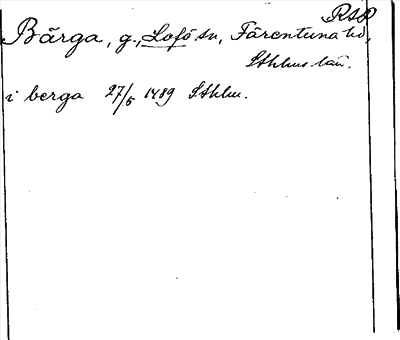 RSP
Bärga, g., Lofö sn, Färentuna hd,
Sthlms län.
i berga 27/5 1489 Sthlm.